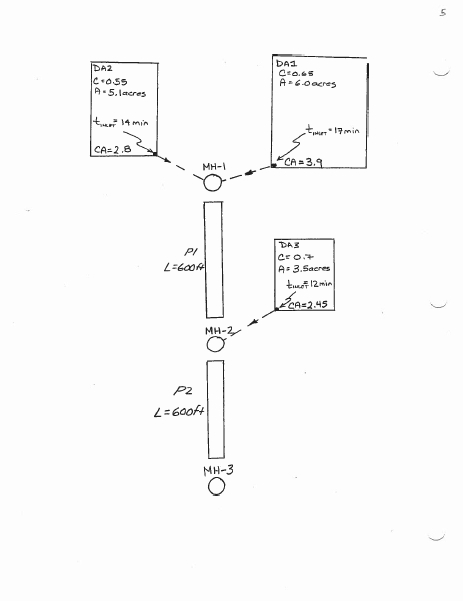 5
DA2
C=0.55
A=5.1acres
tINLET=14min
CA=2.8
DA1
C=0.65
A=6.0acres
tINLET=17min
CA=3.9
MH-1
P1
L=600ft
DA3
C=0.7
A=3.5acres
tINLET=12min
CA=2.45
MH-2
P2
L=600ft
MH-3